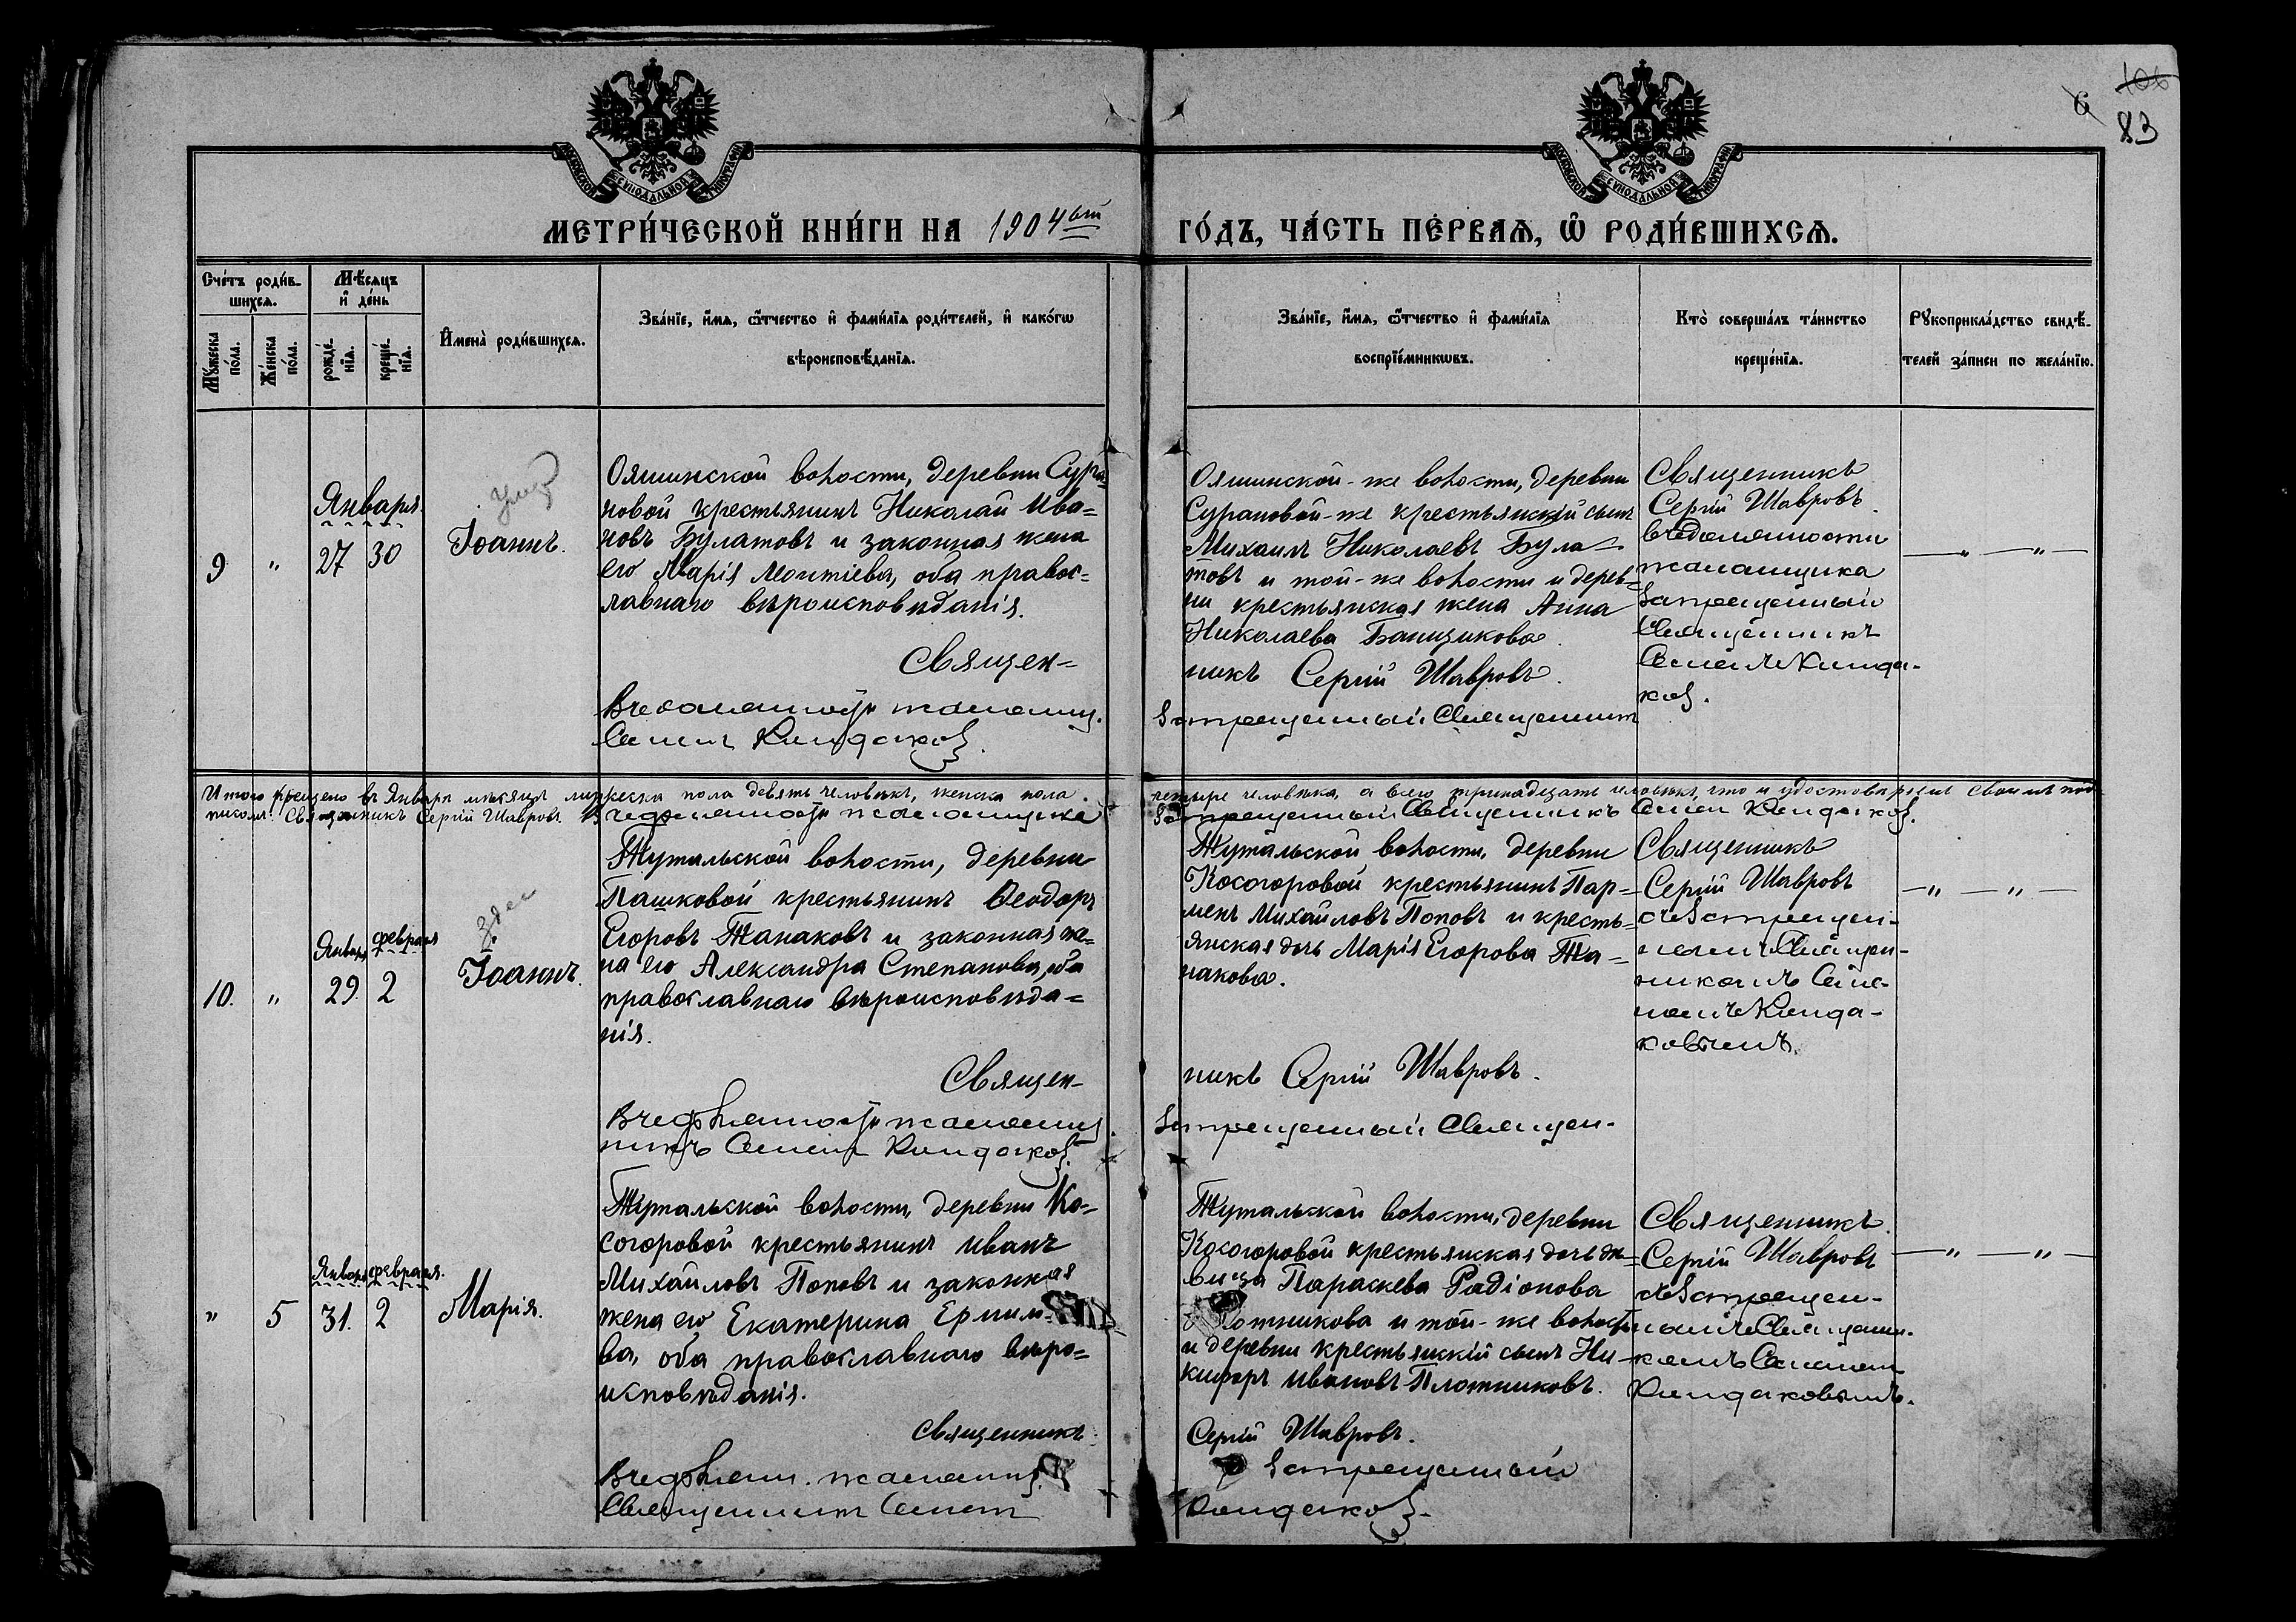 106
6
83
МОСКОВСКОЙ СѴНОДАЛЬНОЙ ТИПОГРАФІИ
МОСКОВСКОЙ СѴНОДАЛЬНОЙ ТИПОГРАФІИ
МЕТРИ́ЧЕСКОЙ КНИ́ГИ НА 1904ый
ГО́ДЪ, ЧА́СТЬ ПЕ́РВАѦ, Ѡ҆ РОДИ́ВШИХСѦ.
Сче́тъ роди́в-
шихсѧ.
Мꙋ́жеска по́ла.
Же́нска по́ла.
Мѣ́сѧцъ
и҆ де́нь
рожде́-
нїѧ.
креще́-
нїѧ.
И҆мена̀ роди́вшихсѧ.
Зва́нїе, и҆́мѧ, ѻ҆́тчество и҆ фами́лїѧ роди́телей, и҆ како́гѡ
вѣроисповѣ́данїѧ.
Зва́нїе, и҆́мѧ, ѻ҆́тчество и҆ фами́лїѧ
воспрїе́мникѡвъ.
Кто̀ соверша́лъ та́инство
креще́нїѧ.
Рꙋкоприкла́дство свидѣ́-
телей за́писи по жела́нїю.
9
"
Января
27 30
Іоаннъ.
Ояшинской волости, деревни Сура-
новой крестьянинъ Николай Ива=
новъ Булатовъ и законная жена
его Марія Леонтіева, оба правос=
лавнаго вѣроисповѣданія.
Священ=
Въ должности псаломщ.
Семенъ Киндаков
Ояшинской-же волости, деревни
Сурановой-же крестьянскій сынъ
Михаилъ Николаевъ Була=
товъ и той-же волости и дерев=
ни крестьянская жена Анна
Николаева Банщикова.
никъ Сергій Шавровъ.
Запрещенный Священникъ
Священникъ
Сергій Шавровъ.
въ должности
псаломщика
Запрещенный
Священникъ
Семенъ Кинда-
ков.
— " — " —
Итого крещено въ Январѣ мѣсяцѣ мужеска пола девять человѣкъ, женска пола
четыре человѣка, а всего тринадцать человѣкъ, что и удостовѣряемъ своимъ под-
писомъ. Священникъ Сергій Шавровъ. Въ должности псаломщика
Запрещенный Священникъ Семен Киндаков.
10.
"
Января февраля
29. 2
Іоаннъ.
Тутальской волости, деревни
Пашковой крестьянинъ Ѳеодоръ
Егоровъ Танаковъ и законная же=
на его Александра Степанова, оба
православнаго вѣроисповѣда=
нія.
Священ=
Въ должности псаломщ.
никъ Семенъ Киндаков.
Тутальской волости, деревни
Косогоровой крестьянинъ Пар=
менъ Михайловъ Поповъ и кресть=
янская дочь Марія Егорова Та=
накова.
никъ Сергій Шавровъ.
Запрещенный Священ-
Священникъ
Сергій Шавровъ
съ Запрещен-
нымъ Священ-
никомъ Семе-
номъ Кинда-
ковымъ.
— " — " —
"
5
Января февраля.
31. 2
Марія.
Тутальской волости, деревни Ко=
согоровой крестьянинъ Иванъ
Михайловъ Поповъ и законная
жена его Екатерина Ермило-
ва, оба православнаго вѣро=
исповѣданія.
Священникъ
Въ должн. псаломщ.
Священникъ Семенъ
Тутальской волости, деревни
Косогоровой крестьянская дочь дѣ=
вица Параскева Радіонова
Плотникова и той-же волости
и деревни крестьянскій сынъ Ни=
кифоръ Ивановъ Плотниковъ.
Сергій Шавровъ.
Запрещенный
Киндаков.
Священникъ
Сергій Шавровъ
съ Запрещен-
нымъ Священни-
комъ Семеном
Киндаковымъ.
— " — " —